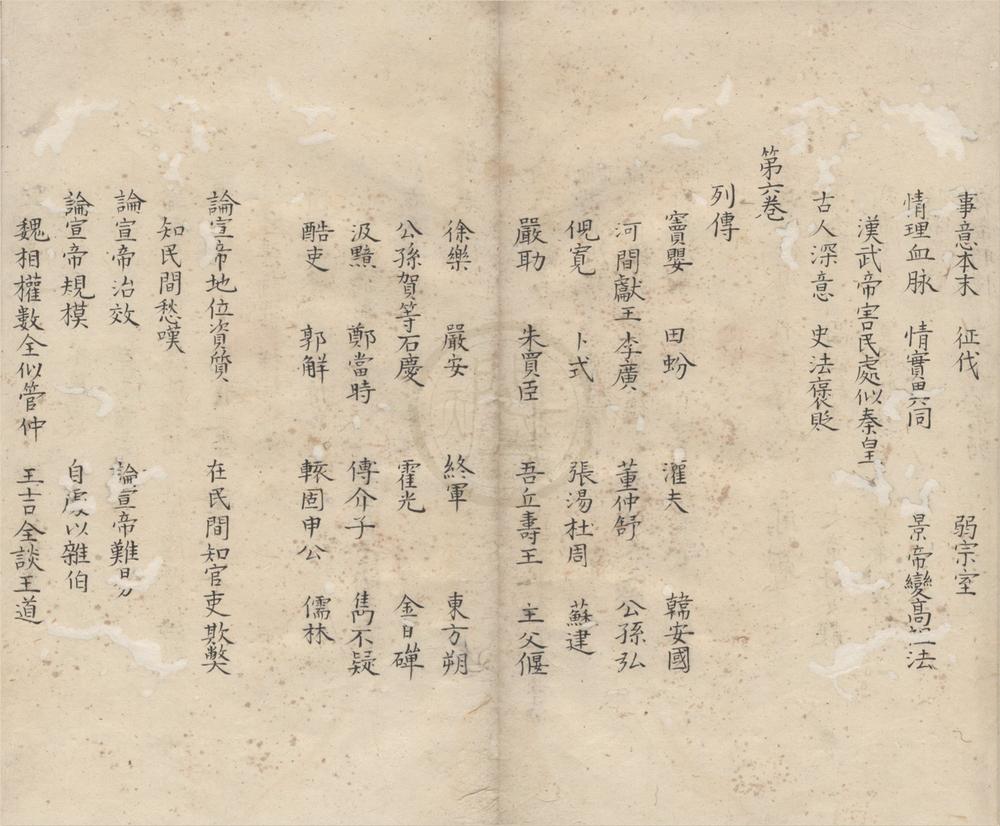 事意本末 征伐 弱宗室
情理血脉 情實異同 景帝變高祖法
漢武帝害民處似秦皇
古人深意 史法褒貶
第六卷
列傳
竇嬰 田蚡 灌夫 韓安國
河間獻王 李廣 董仲舒 公孫弘
倪寬 卜式 張湯杜周 蘇建
嚴助 朱買臣 吾丘壽王 主父偃
徐樂 嚴安 終軍 東方朔
公孫賀等 石慶 霍光 金日磾
汲黯 鄭當時 傅介子 雋不疑
酷吏 郭解 轅固申公 儒林
論宣帝地位資質 在民間知官吏欺弊
知民間愁嘆
論宣帝治效 論宣帝難易
論宣帝規模 自處以雜伯
魏相權數全似管仲 王吉全談王道